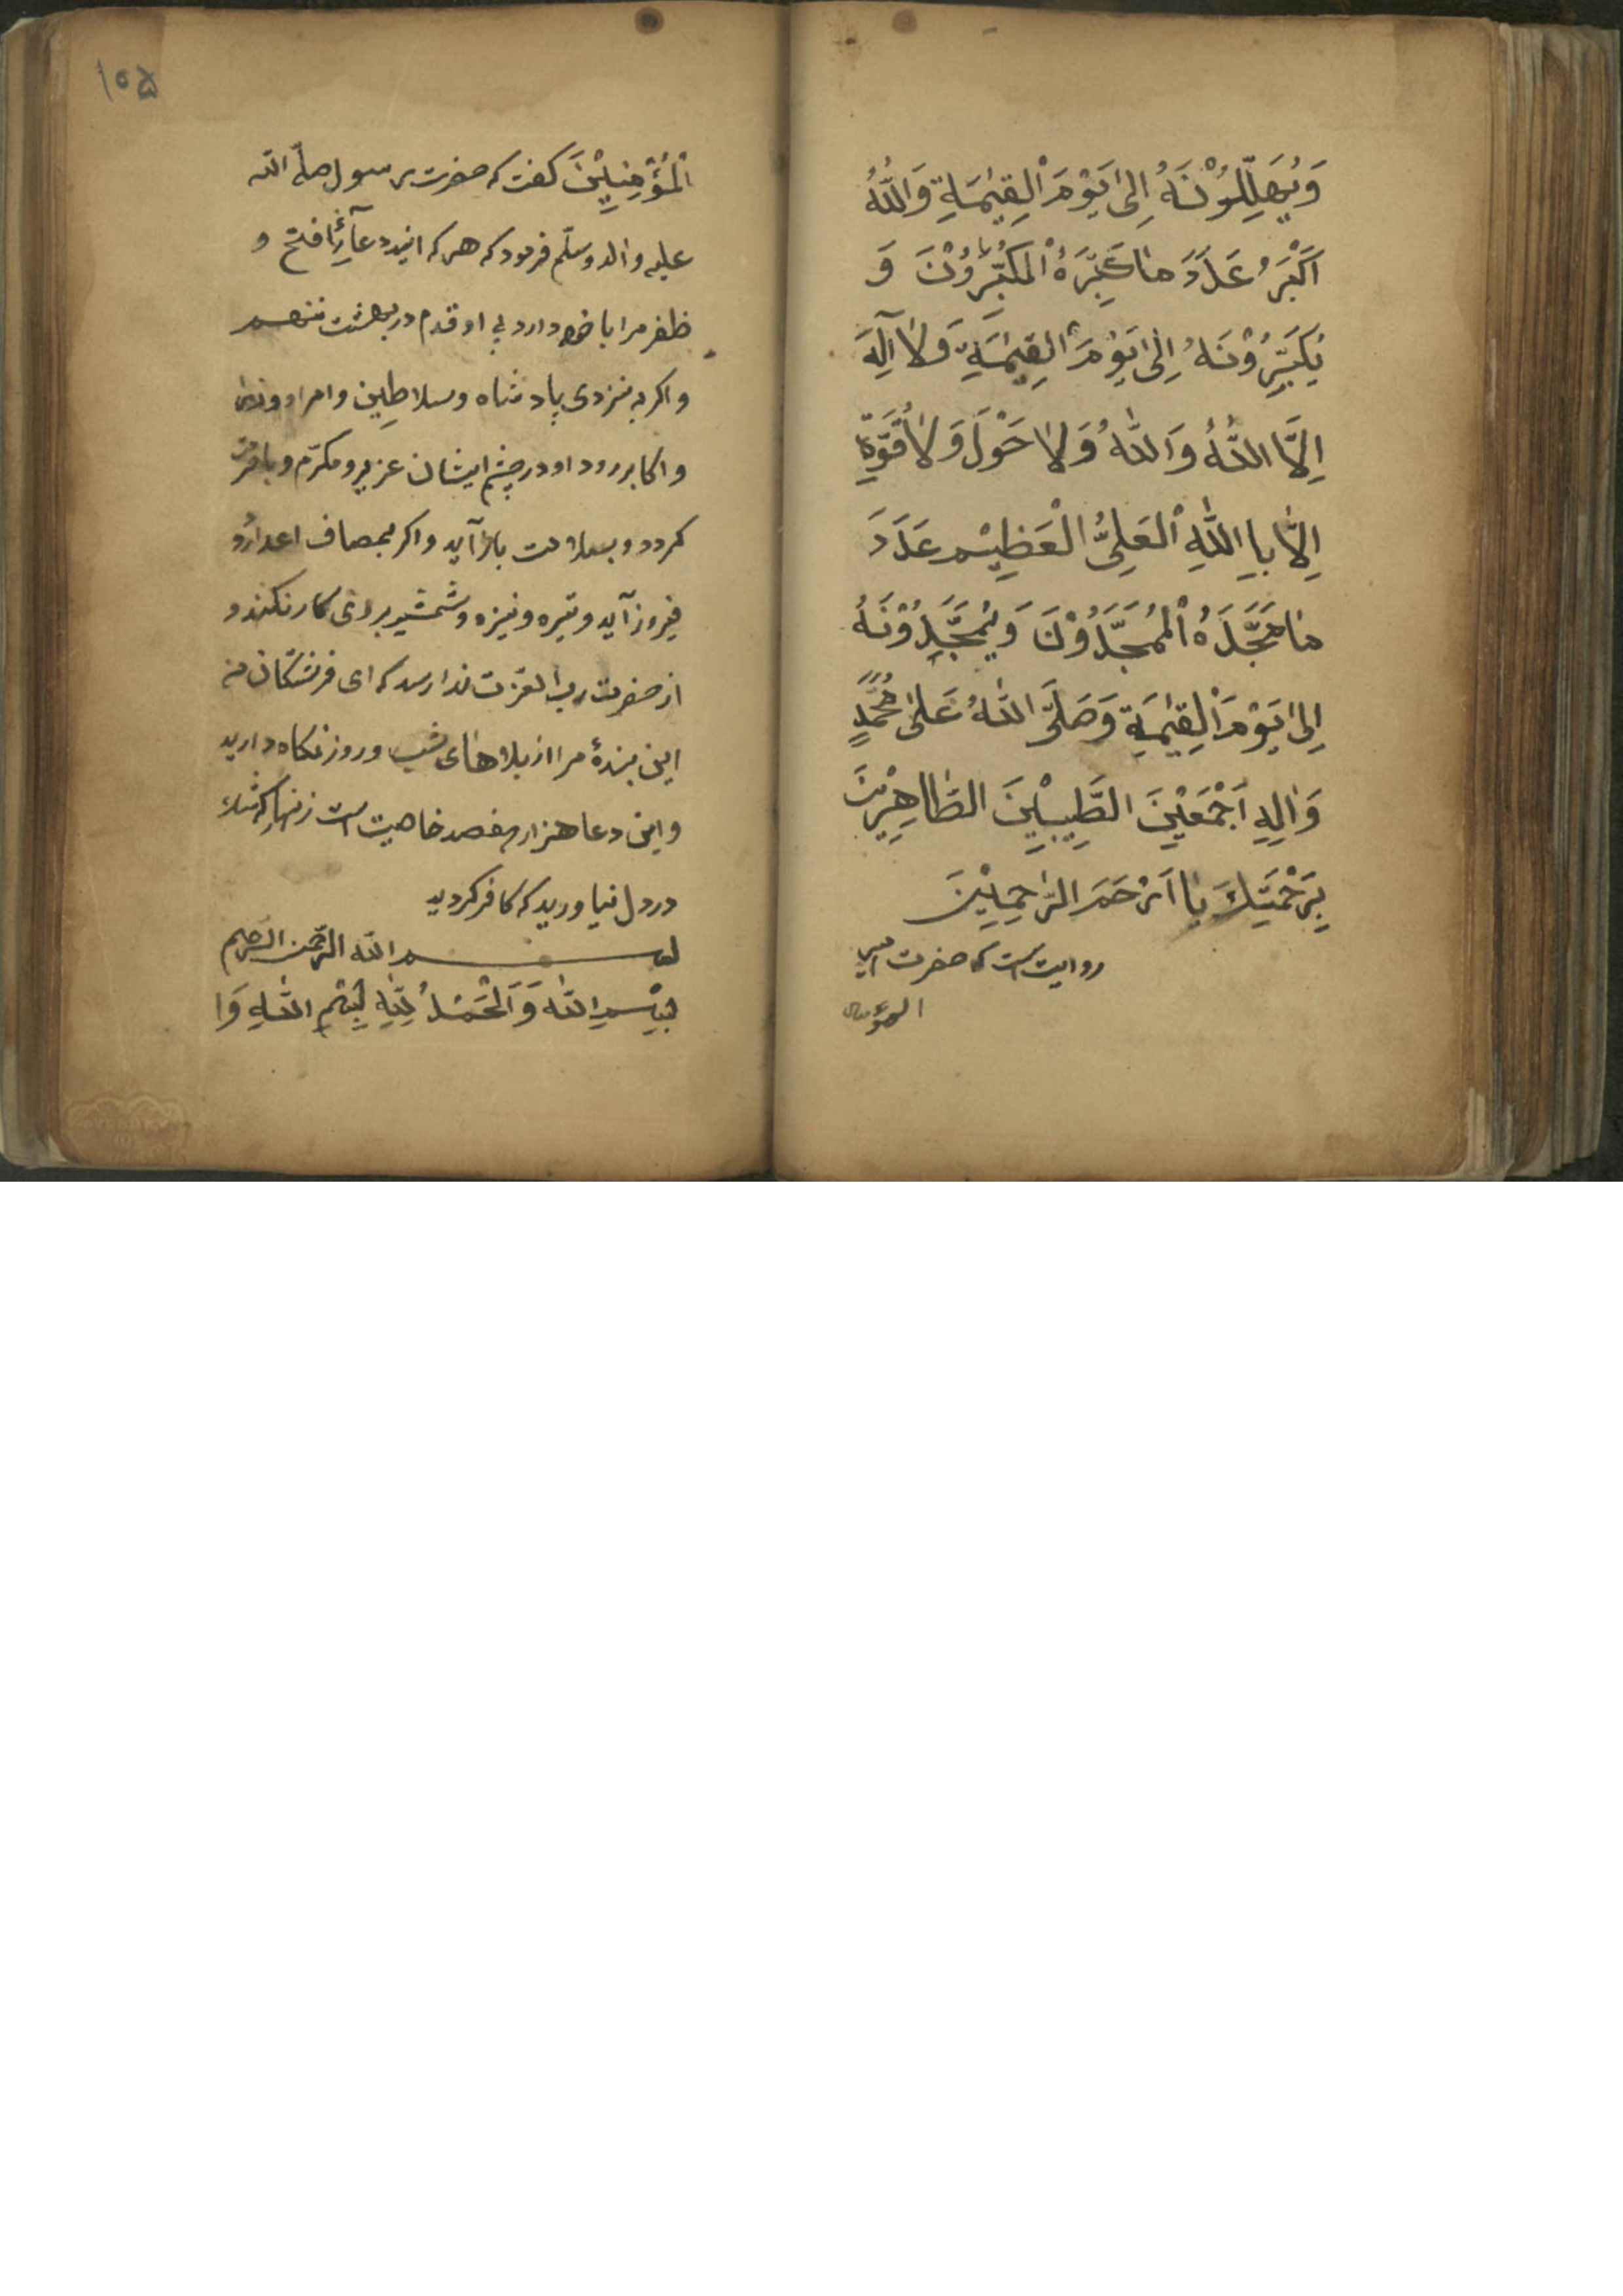 وَيُهَلِّلُوْنَهُ اِلیٰ يَوْمَ الْقِيٰمَةِ وَاللّٰهُ
اَكْبَرُ عَدَدَ مٰا كَبَّرَهُ الْمُكَبِّرُوْنَ وَ
يُكَبِّرُوْنَهُ اِلیٰ يَوْمَ الْقِيٰمَةِ وَلٰا اِلٰهَ
اِلَّا اللّٰهُ وَاللّٰهُ وَلٰا حَوْلَ وَلٰا قُوَّةِ
اِلّٰا بِا اللّٰهِ الْعَلِیُّ الْعَظِيْم عَدَدَ
مٰا مَجَّدَهُ الْمُمَجِّدُوْنَ وَيُمَجِّدُوْنَهُ
اِلیٰ يَوْمَ الْقِيٰمَةِ وَصَلَّی اللّٰهُ عَلیٰ مُحَمَّدٍ
وَاٰلِهِ اَجْمَعِيْنَ الطَّيِّبِيْنَ الطّٰاهِرِيْنَ
بِرَحْمَتِكَ يٰا اَرْحَمَ الرّٰحِمِيْنَ
روايت است كه حضرت امير
المؤمنين
۱۰۵
الْمُؤْمِنِيْنَ كفت كه حضرت رسول صلّی اللّه
عليه واله وسلّم فرمود كه هر كه اين دعآء فتح و
ظفر مرا با خود دارد بی او قدم در بهشت ننهم
و اكر به نزدی پادشاه وسلاطين وامرا ووزرا
و اكابر رود او در چشم ايشان عزيز ومكرّم و با
كردد و بسلامت باز آيد و اكر بمصاف اعدا رو
فيروز آيد و تيره و نيزه و شمشير بر وی كار نكند و
از حضرت ربّ العزت ندا رسد كه ای فرشتكان من
اين بندهٔ مرا از بلاهای شب و روز نكاه داريد
و اين دعا هزار و هفصد خاصيت است زنهار كه شك
در دل نياوريد كه كافر كرديد
بسم اللّه الرّحمن الرّحيم
بِسْمِ اللّٰه وَ الْحَمْدُ لِلّٰهِ بِسْمِ اللّٰهِ وَا